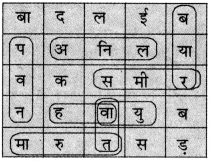 बा द ल ई ब
प अ नि ल या
व क स मी र
न ह वा यु ब
मा रु त स ड़